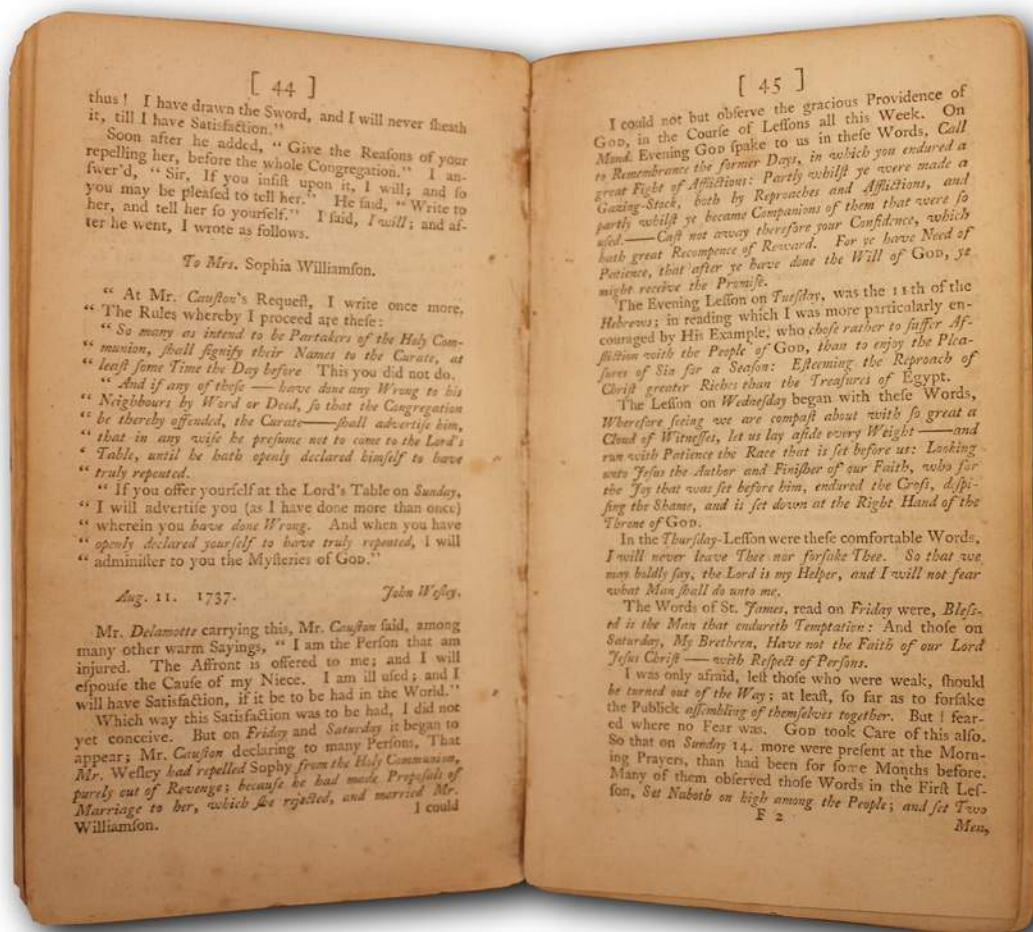 [ 44 ]
thus! I have drawn the Sword, and I will never ſheath
it, till I have Satisfaction."
Soon after he added, " Give the Reaſons of your
repelling her, before the whole Congregation." I an-
ſwer'd, " Sir, If you inſiſt upon it, I will; and ſo
you may be pleaſed to tell her." He ſaid, " Write to
her, and tell her ſo yourſelf." I ſaid, I will; and af-
ter he went, I wrote as follows.
To Mrs. Sophia Williamſon.
" At Mr. Cauſton's Requeſt, I write once more.
" The Rules whereby I proceed are theſe:
" So many as intend to be Partakers of the Holy Com-
" munion, ſhall ſignify their Names to the Curate, at
" leaſt ſome Time the Day before This you did not do.
" And if any of theſe — have done any Wrong to his
" Neighbours by Word or Deed, ſo that the Congregation
" be thereby offended, the Curate——ſhall advertiſe him,
" that in any wiſe he preſume not to come to the Lord's
' Table, until he hath openly declared himſelf to have
" truly repented.
" If you offer yourſelf at the Lord's Table on Sunday,
" I will advertiſe you (as I have done more than once)
" wherein you have done Wrong. And when you have
" openly declared yourſelf to have truly repented, I will
" adminiſter to you the Myſteries of GOD."
Aug. 11. 1737. John Weſley.
Mr. Delamotte carrying this, Mr. Cauſton ſaid, among
many other warm Sayings, " I am the Perſon that am
injured. The Affront is offered to me; and I will
eſpouſe the Cauſe of my Niece. I am ill uſed; and I
will have Satisfaction, if it be to be had in the World."
Which way this Satisfaction was to be had, I did not
yet conceive. But on Friday and Saturday it began to
appear; Mr. Cauſton declaring to many Perſons, That
Mr. Weſley had repelled Sophy from the Holy Communion,
purely out of Revenge; becauſe he had made Propoſals of
Marriage to her, which ſhe rejected, and married Mr.
Williamſon.
I could
[ 45 ]
I could not but obſerve the gracious Providence of
GOD, in the Courſe of Leſſons all this Week. On
Mond. Evening GOD ſpake to us in theſe Words, Call
to Remembrance the former Days, in which you endured a
great Fight of Afflictions: Partly whilſt ye were made a
Gazing-Stock, both by Reproaches and Afflictions, and
partly whilſt ye became Companions of them that were ſo
uſed.——Caſt not away therefore your Confidence, which
hath great Recompence of Reward. For ye have Need of
Patience, that after ye have done the Will of GOD, ye
might receive the Promiſe.
The Evening Leſſon on Tueſday, was the 11th of the
Hebrews; in reading which I was more particularly en-
couraged by His Example, who choſe rather to ſuffer Af-
fliction with the People of GOD, than to enjoy the Plea-
ſures of Sin for a Seaſon: Eſteeming the Reproach of
Chriſt greater Riches than the Treaſures of Egypt.
The Leſſon on Wedneſday began with theſe Words,
Wherefore ſeeing we are compaſt about with ſo great a
Cloud of Witneſſes, let us lay aſide every Weight ——and
run with Patience the Race that is ſet before us: Looking
unto Jeſus the Author and Finiſher of our Faith, who for
the Joy that was ſet before him, endured the Croſs, deſpi-
ſing the Shame, and is ſet down at the Right Hand of the
Throne of GOD.
In the Thurſday-Leſſon were theſe comfortable Words,
I will never leave Thee nor forſake Thee. So that we
may boldly ſay, the Lord is my Helper, and I will not fear
what Man ſhall do unto me.
The Words of St. James, read on Friday were, Bleſſ-
ed is the Man that endureth Temptation: And thoſe on
Saturday, My Brethren, Have not the Faith of our Lord
Jeſus Chriſt — with Reſpect of Perſons.
I was only afraid, leſt thoſe who were weak, ſhould
be turned out of the Way; at leaſt, ſo far as to forſake
the Publick aſſembling of themſelves together. But I fear-
ed where no Fear was. GOD took Care of this alſo.
So that on Sunday 14. more were preſent at the Morn-
ing Prayers, than had been for ſome Months before.
Many of them obſerved thoſe Words in the Firſt Leſ-
ſon, Set Naboth on high among the People; and ſet Two
F 2
Men,